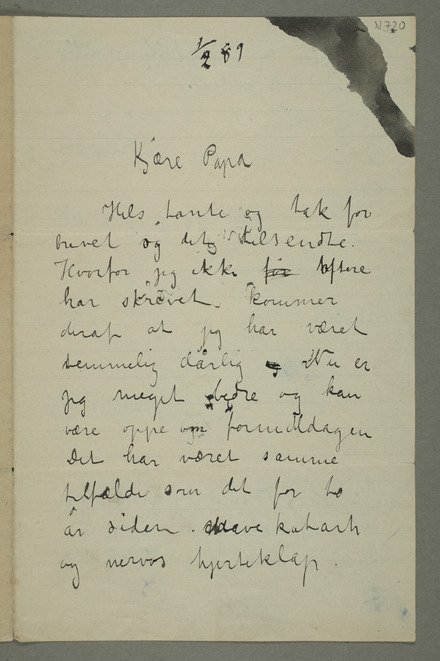 N 720
1/2 89
Kjære Papa
Hils tante og tak for
brevet og det tilsendte.
Hvorfor jeg ikke oftere
har skrevet kommer
deraf at jeg har været
temmelig dårlig Nu er
jeg meget bedre og kan
være oppe om formiddagen
Det har været samme
tilfælde som det for to
år siden. Mave katarh
og nervøs hjerteklap.